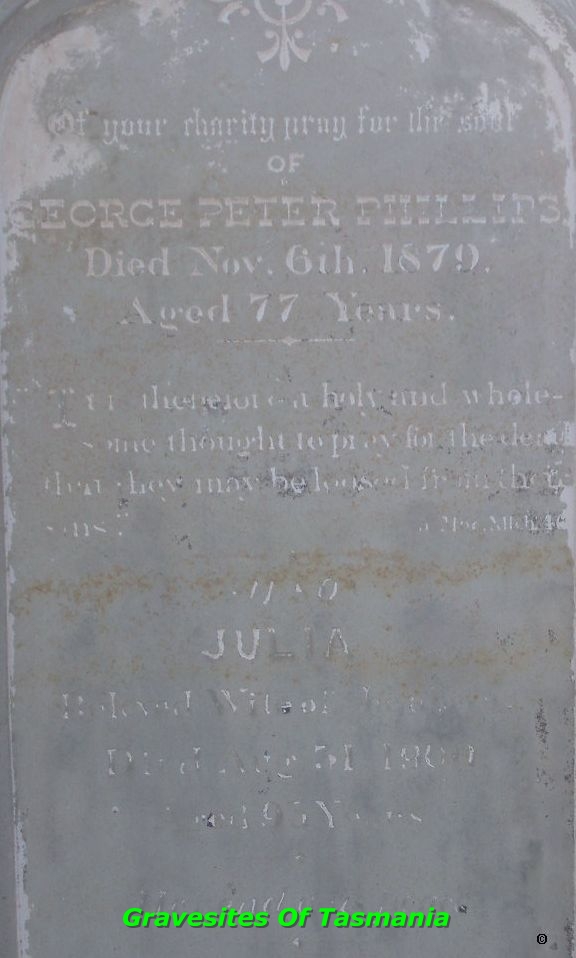 Of your charity pray for the soul
OF
GEORGE PETER PHILLIPS
Died Nov. 6th. 1879.
Aged 77 Years.
therefore a holy and whole-
some thought to pray for the dead
that they may be loosed from there
sins."
ALSO
JULIA
Beloved Wife of
Died Aug 31
Aged 95 Years
Gravesites Of Tasmania
©